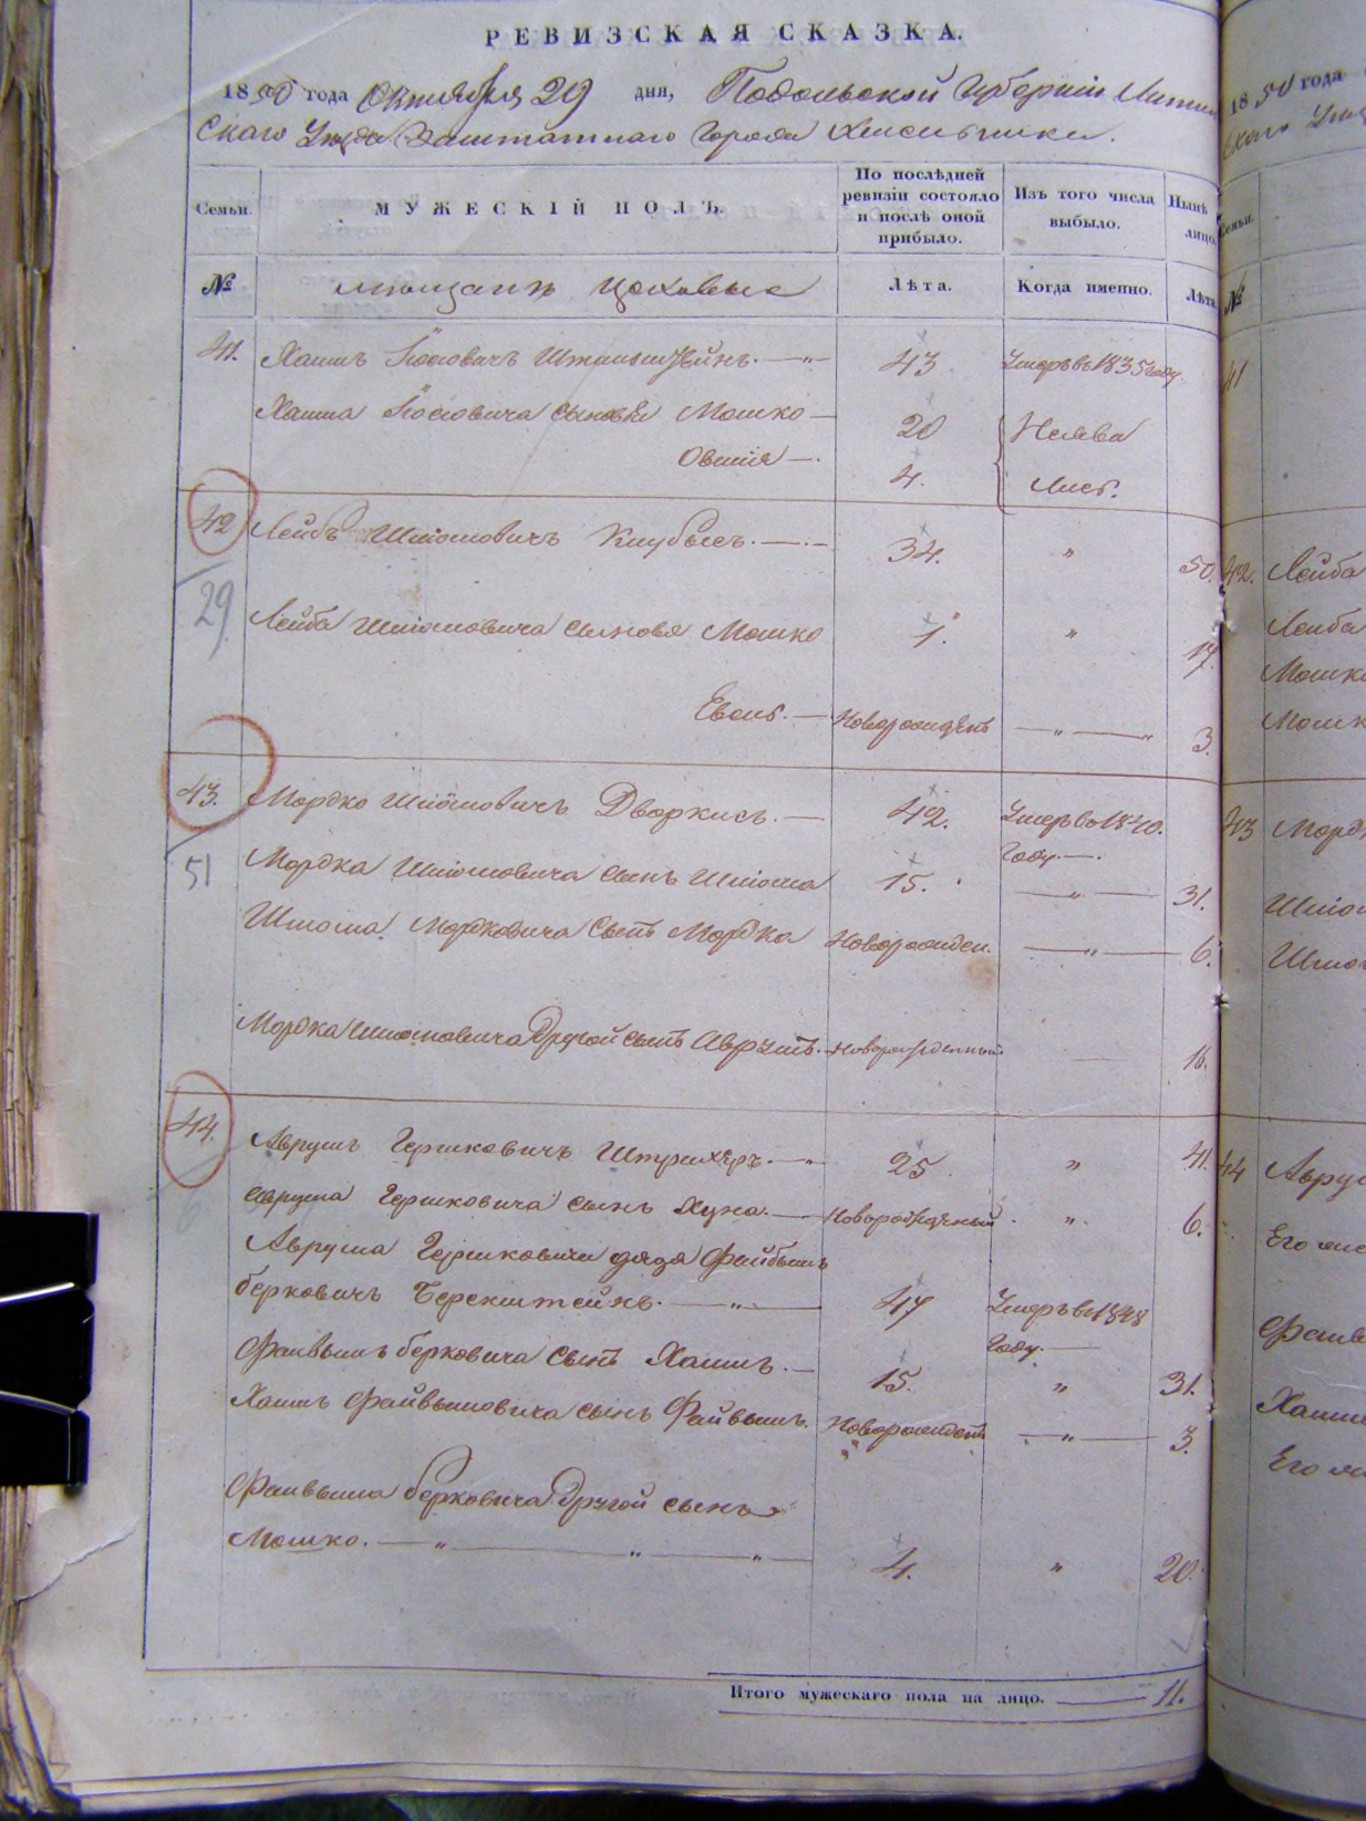 РЕВИЗСКАЯ СКАЗКА.
1850 года Октября 29 дня, Подольской Губерніи Литин
скаго Уезда Заштатнаго Города Хмельника.
Семьи. МУЖЕСКІЙ ПОЛЪ. По послѣдней ревизіи состояло и послѣ оной прибыло. Изъ того числа выбыло. Нынѣ лицо.
№ мещане цеховые Лѣта. Когда именно. Лѣта
41. Хаимъ Іосіовичъ 43 Умеръ въ 1835 году
Хаима Іосіовича сыновья Мошко — 20 Неява
Овшія —. 4. Лись.
42 Лейбъ Шліомовичъ — 34. " 50.
29
Лейба Шліомовича сыновья Мошко 1. " 17.
— Новорожденъ — " — " 3.
43. Мордко Шліомовичъ Дворкисъ. — 42. Умеръ въ 1840.
году. —.
51 Мордка Шліомовича сынъ Шліома 15. — " — 31.
Шліома Мордковича сынъ Мордка Новорожден. — " — 6.
Мордка Шліомовича другой сынъ Аврумъ. — Новорожденный — 16.
44. Аврумъ Гершковичъ Штрихеръ. — " 25 " 41.
Аврума Гершковича сынъ Хуна. — Новорожденный. " 6.
Аврума Гершковича дядя Файвышъ
Берковичъ Беренштейнъ. — " — 47 Умеръ въ 1848
году. —
Файвышъ Берковича сынъ Хаимъ. — 15. " 31.
Хаимъ Файвышовича сынъ Файвышъ. Новорожденъ — " — 3.
Файвыша Берковича другой сынъ
Мошко. — " — " — " — 4. " 20.
Итого мужескаго пола на лицо. — 11.
1850 года
скаго Уезд
Семьи.
№
41
42. Лейба
Лейба
Мошк
Мошк
43 Морд
Шліо
Шліо
44 Авру
Его
Файв
Хаим
Его